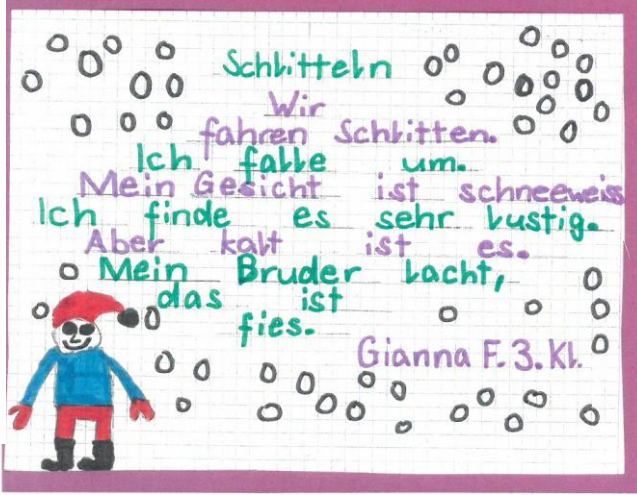 Schlitteln
Wir
fahren Schlitten.
Ich falle um.
Mein Gesicht ist schneeweiss
Ich finde es sehr lustig.
Aber kalt ist es.
Mein Bruder lacht,
das ist
fies.
Gianna F. 3. Kl.